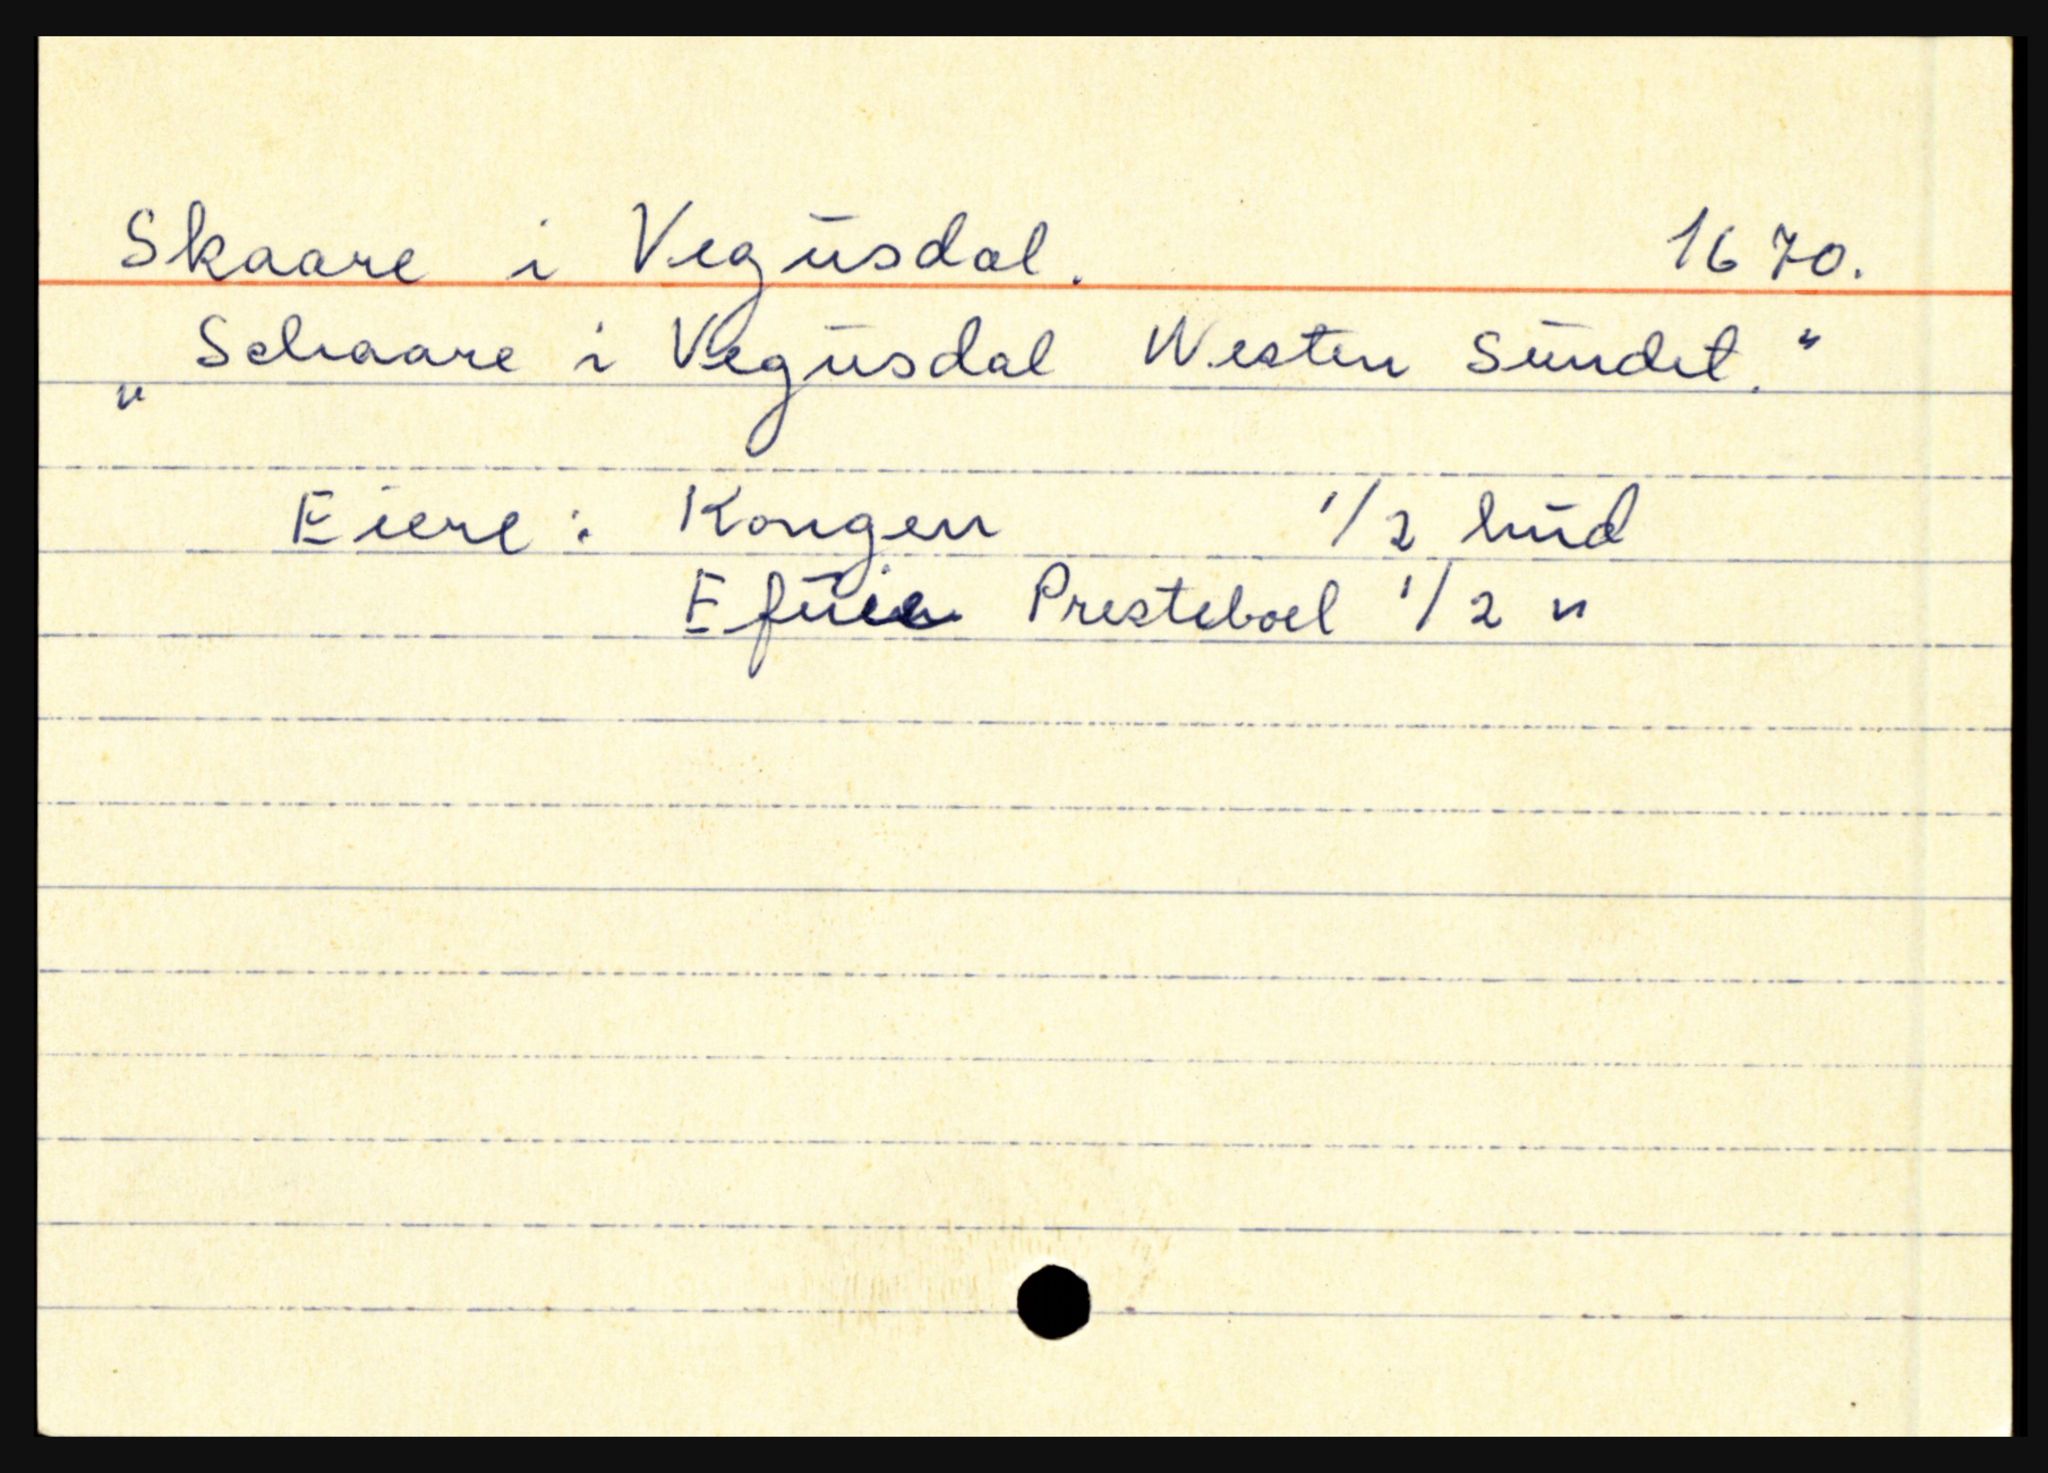 Skaare i Vegusdal. 1670.
„Schaare i Vegusdal Westen Sundet."
Eiere: Kongen 1/2 hud
Efuie Presteboel 1/2 "